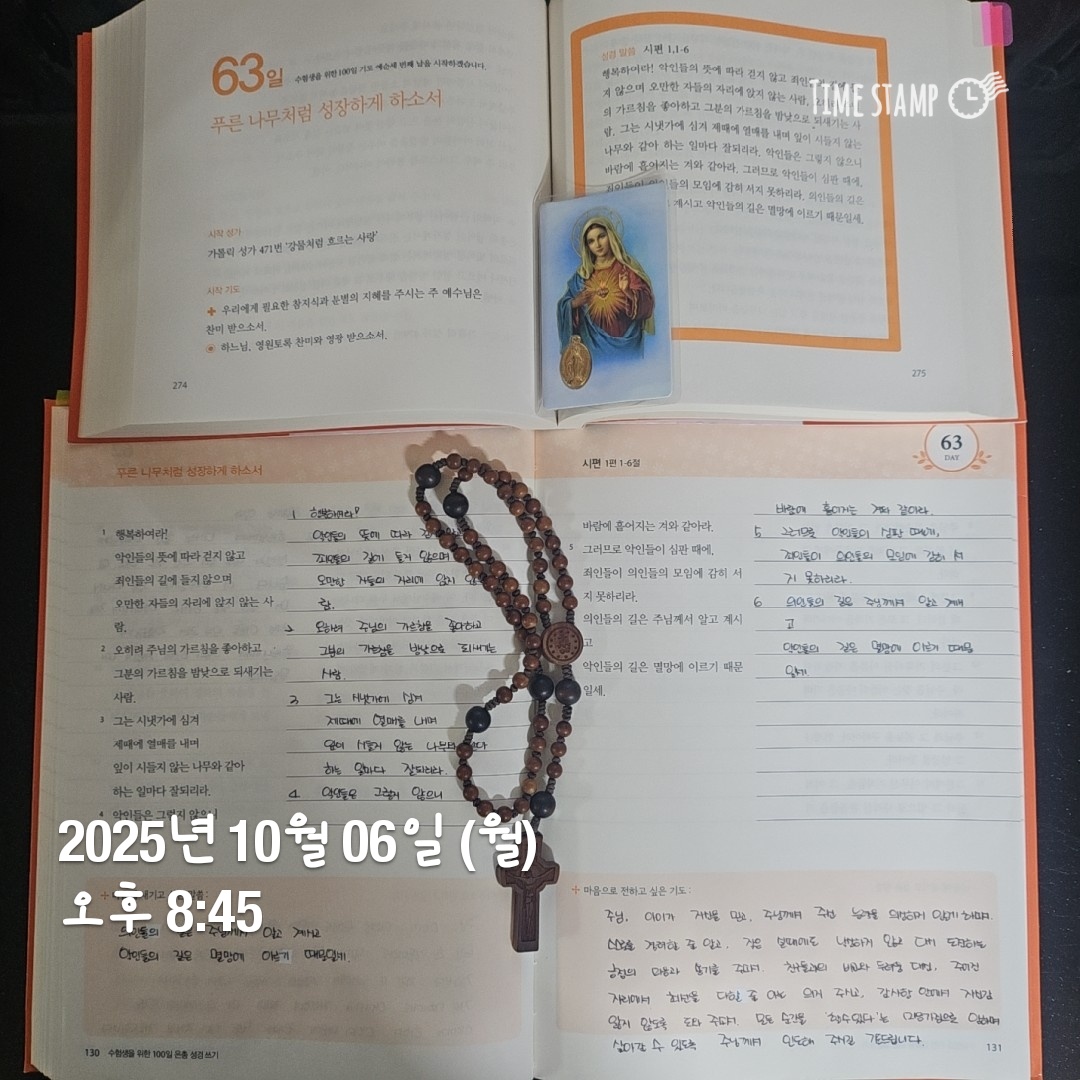 63일 수험생을 위한 100일 기도 예순세 번째 날을 시작하겠습니다.
푸른 나무처럼 성장하게 하소서
시작 성가
가톨릭 성가 471번 '강물처럼 흐르는 사랑'
시작 기도
우리에게 필요한 참지식과 분별의 지혜를 주시는 주 예수님은
찬미 받으소서.
하느님, 영원토록 찬미와 영광 받으소서.
274
성경 말씀 시편 1,1-6
행복하여라! 악인들의 뜻에 따라 걷지 않고
지 않으며 오만한 자들의 자리에 앉지 않는 사람,
의 가르침을 좋아하고 그분의 가르침을 밤낮으로 되새기는 사
람. 그는 시냇가에 심겨 제때에 열매를 내며 잎이 시들지 않는
나무와 같아 하는 일마다 잘되리라. 악인들은 그렇지 않으니
바람에 흩어지는 겨와 같아라. 그러므로 악인들이 심판 때에,
의인들의 모임에 감히 서지 못하리라. 의인들의 길은
계시고 악인들의 길은 멸망에 이르기 때문일세.
275
TIME STAMP
푸른 나무처럼 성장하게 하소서
1 행복하여라!
악인들의 뜻에 따라 걷지 않고
죄인들의 길에 들지 않으며
오만한 자들의 자리에 앉지 않는 사
람.
2 오히려 주님의 가르침을 좋아하고
그분의 가르침을 밤낮으로 되새기는
사람.
3 그는 시냇가에 심겨
제때에 열매를 내며
잎이 시들지 않는 나무와 같아
하는 일마다 잘되리라.
4 악인들은 그렇지 않으니
1 행복하여라!
악인들의 뜻에 따라
죄인들의 길에 들지 않으며
오만한 자들의 자리에 앉지
람.
오히려 주님의 가르침을 좋아하고
그분의 가르침을 밤낮으로 되새기는
사람.
3 그는 시냇가에 심겨
제때에 열매를 내며
잎이 시들지 않는
하는 일마다 잘되리라.
4 악인들은 그렇지 않으니
시편 1편 1-6절
63
DAY
바람에 흩어지는 겨와 같아라.
5 그러므로 악인들이 심판 때에,
죄인들이 의인들의 모임에 감히 서
지 못하리라.
의인들의 길은 주님께서 알고 계시
고
악인들의 길은 멸망에 이르기 때문
일세.
바람에 흩어지는 겨와 같아라.
5 그러므로 악인들이 심판 때에,
죄인들이 의인들의 모임에 감히 서
지 못하리라.
6 의인들의 길은 주님께서 알고 계시
고
악인들의 길은 멸망에 이르기 때문
일세
2025년 10월 06일 (월)
오후 8:45
의인들의 길은 주님께서 알고 계시고
악인들의 길은 멸망에 이르기 때문일세.
130 수험생을 위한 100일 은총 성경 쓰기
마음으로 전하고 싶은 기도 :
주님, 아이가 자신을 믿고, 주님께서 주신 능력을 의심하지 않게 하소서.
알고, 작은 실패에도 낙심하지 않고 다시 도전하는
긍정의 마음과 용기를 주소서. 친구들과의 비교와 두려움 대신, 주어진
자리에서 최선을 다할 줄 아는 의지 주시고, 감사함 안에서 자신감
잃지 않도록 도와 주소서. 모든 순간을 '할수있다'는
살아갈 수 있도록 주님께서 인도해 주시길 기도드립니다.
131